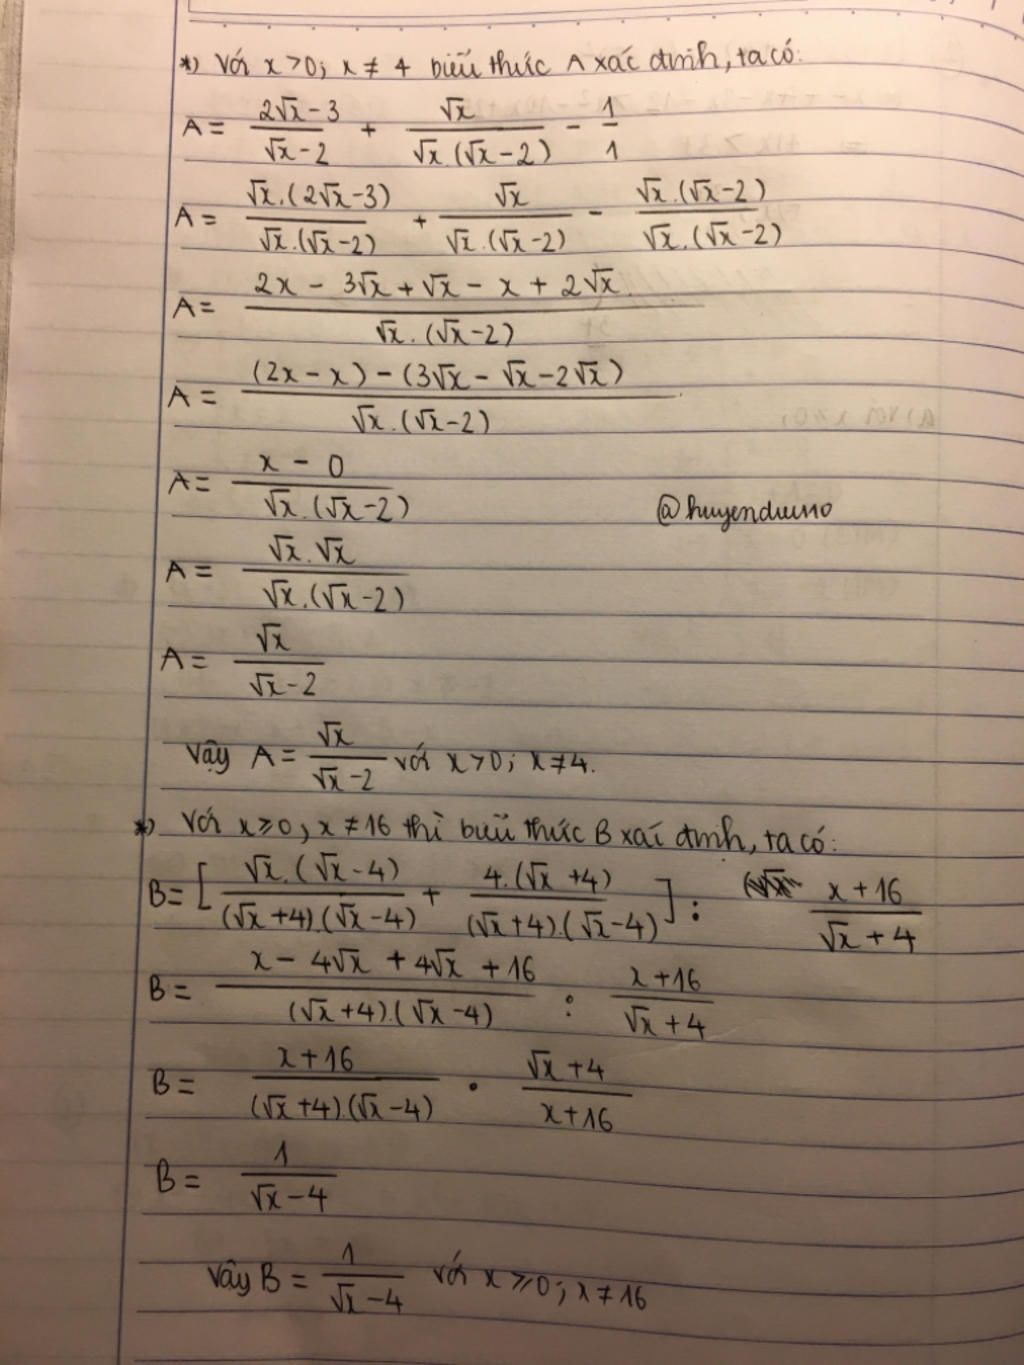 *) Với x > 0; x ≠ 4 biểu thức A xác định, ta có:
A = (2√x − 3)/(√x − 2) + √x/(√x.(√x − 2)) − 1/1
A = (√x.(2√x − 3))/(√x.(√x − 2)) + √x/(√x.(√x − 2)) − (√x.(√x − 2))/(√x.(√x − 2))
A = (2x − 3√x + √x − x + 2√x)/(√x.(√x − 2))
A = ((2x − x) − (3√x − √x − 2√x))/(√x.(√x − 2))
A = (x − 0)/(√x.(√x − 2))
@huyenduno
A = (√x.√x)/(√x.(√x − 2))
A = √x/(√x − 2)
Vậy A = √x/(√x − 2) với x > 0; x ≠ 4.
*) Với x ≥ 0, x ≠ 16 thì biểu thức B xác định, ta có:
B = [(√x.(√x − 4))/((√x + 4).(√x − 4)) + (4.(√x + 4))/((√x + 4).(√x − 4))] : (x + 16)/(√x + 4)
B = (x − 4√x + 4√x + 16)/((√x + 4).(√x − 4)) : (x + 16)/(√x + 4)
B = (x + 16)/((√x + 4).(√x − 4)) . (√x + 4)/(x + 16)
B = 1/(√x − 4)
Vậy B = 1/(√x − 4) với x ≥ 0; x ≠ 16